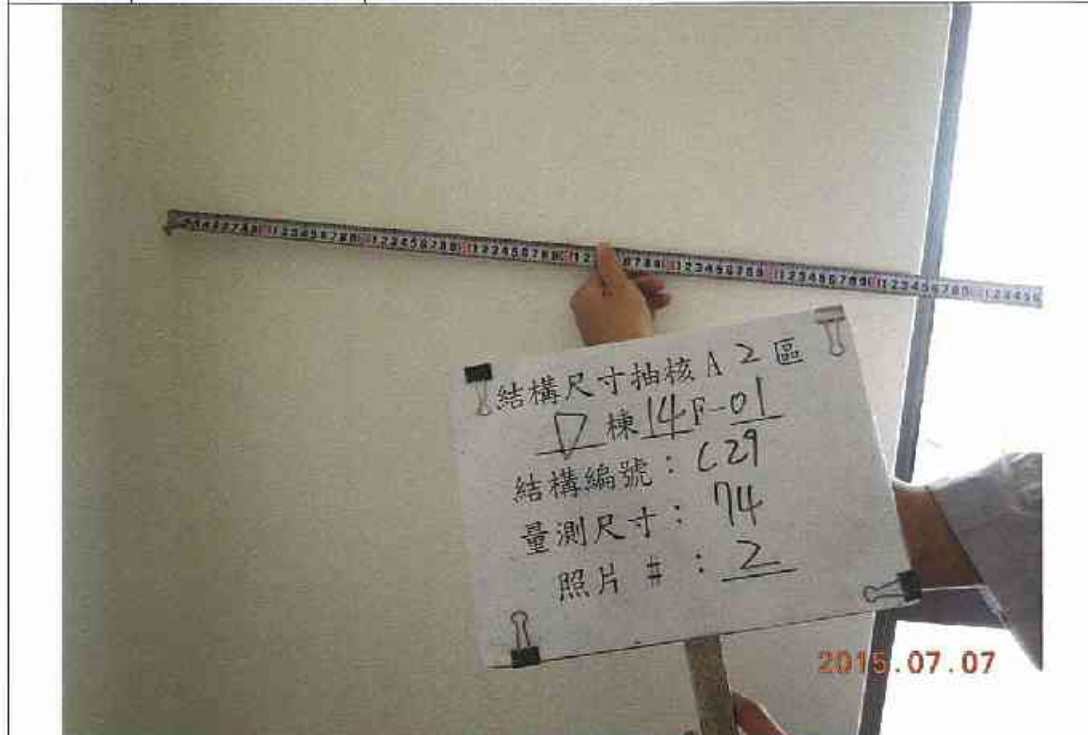 結構尺寸抽核A2區
D棟14F-01
結構編號：C29
量測尺寸：74
照片#：2
2015.07.07